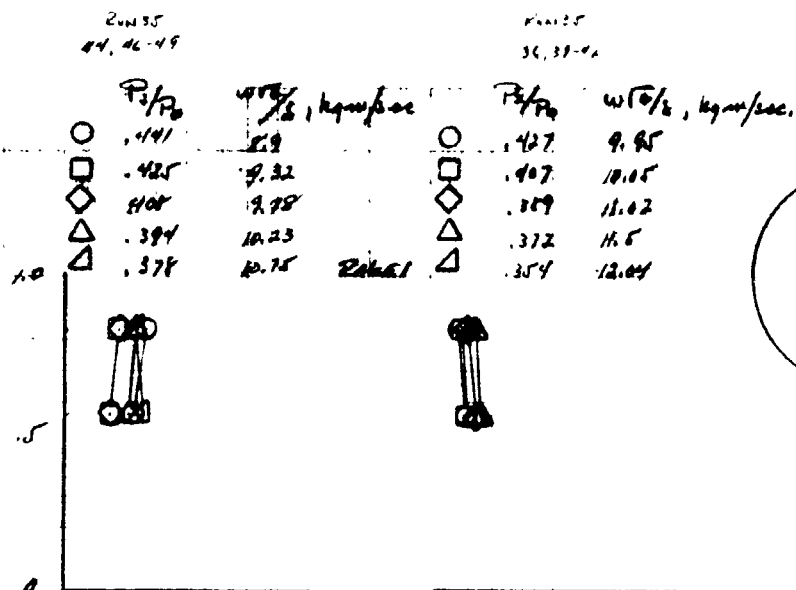 Run 35
44, 46-49
P3/P0 , kgm/sec
.441 8.9
.425 9.32
.408 9.78
.394 10.23
.378 10.75
36, 39-42
P3/P0 w√θ/δ, kgm/sec.
.427 9.95
.407
.389 11.02
.372 11.5
.354 12.04
1.0
.5
0